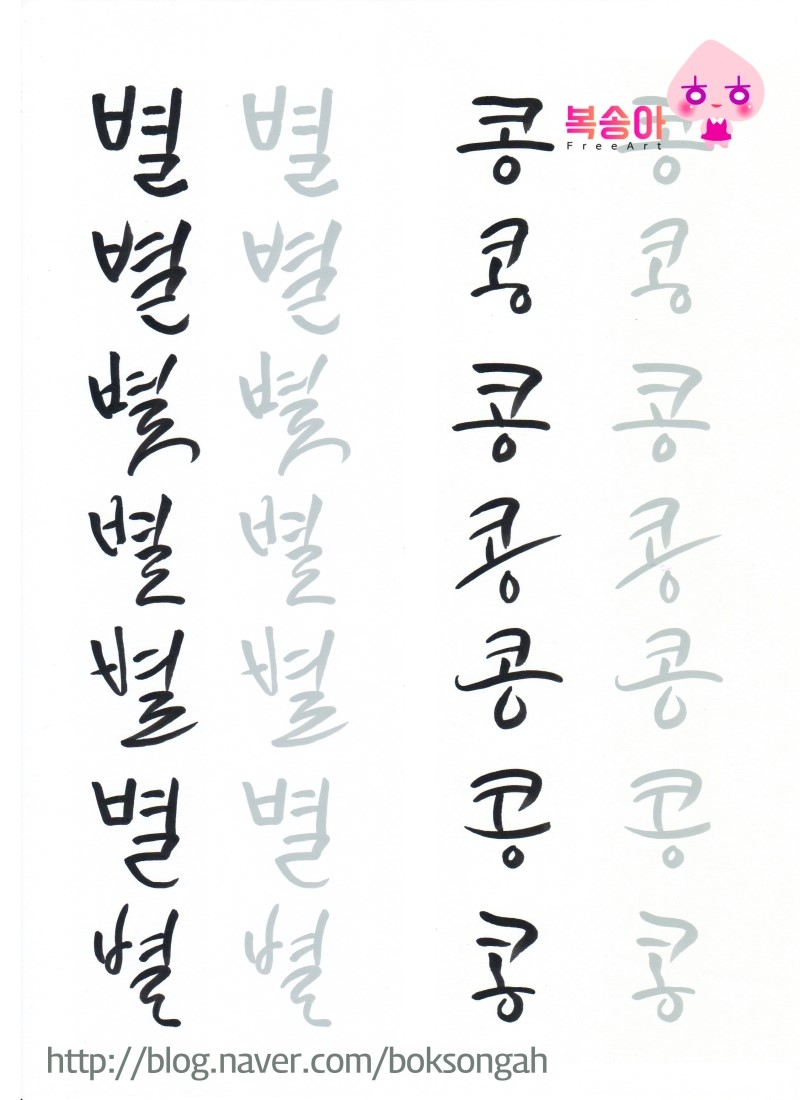 별 별 콩 콩
복숭아
FreeArt
별 별 콩 콩
별 별 콩 콩
별 별 콩 콩
별 별 콩 콩
별 별 콩 콩
별 별 콩 콩
http://blog.naver.com/boksongah